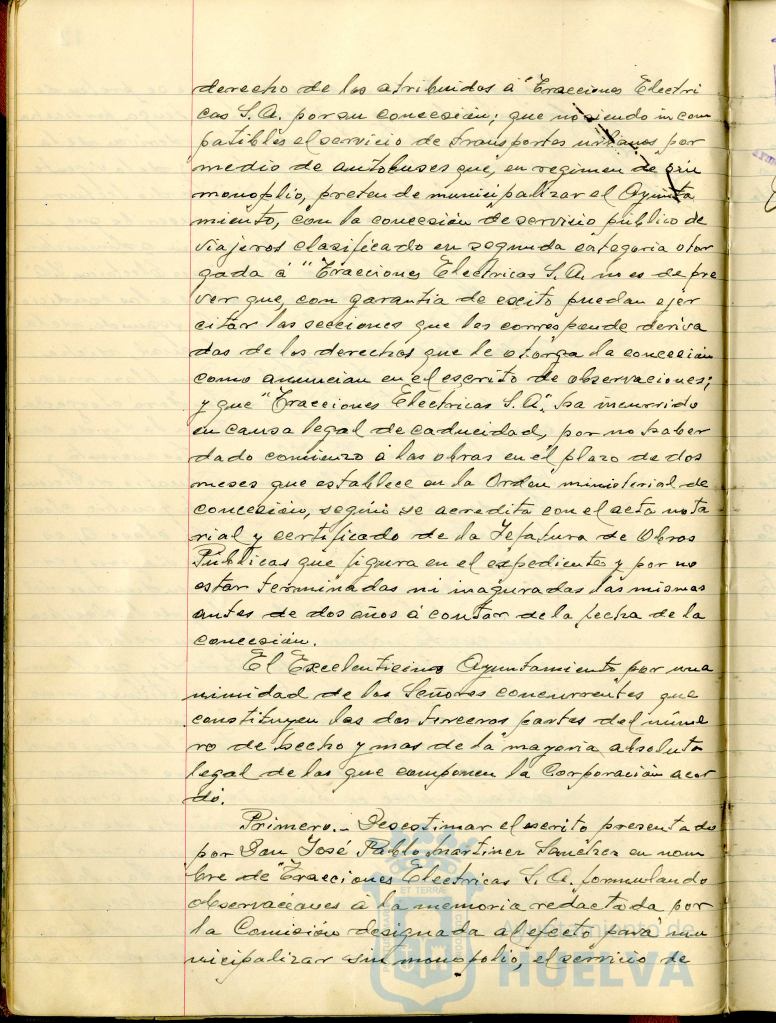 derecho de los atribuidos á "Tracciones Electri
cas S.A. por su concesión; que no siendo incom
patibles el servicio de transportes urbanos por
medio de autobuses que, en regimen de sin
monoplio, pretende municipalizar el Ayunta
miento, con la concesión de servicio público de
viajeros clasificado en segunda categoria otor
gada á "Tracciones Electricas S.A. no es de pre
ver que, con garantia de exito puedan ejer
citar las secciones que les corresponde deriva
das de los derechos que le otorga la concesión
como anuncian en el escrito de observaciones;
y que "Tracciones Electricas S.A." ha incurrido
en causa legal de caducidad, por no haber
dado comienzo á las obras en el plazo de dos
meses que establece en la Orden ministerial de
concesión, según se acredita con el acta nota
rial y certificado de la Jefatura de Obras
Públicas que figura en el expediente y por no
estar terminadas ni inaguradas las mismas
antes de dos años á contar de la fecha de la
concesión.
El Excelentisimo Ayuntamiento por una
nimidad de los Señores concurrentes que
constituyen las dos terceras partes del núme
ro de hecho y mas de la mayoria absoluta
legal de los que componen la Corporación acor
dó.
Primero.- Desestimar el escrito presentado
por Don José Pablo Martinez Sanchez en nom
bre de "Tracciones Electricas S.A. formulando
observaciones á la memoria redactada por
la Comisión designada al efecto para mu
nicipalizar sin monopolio, el servicio de
Ayuntamiento de
HUELVA